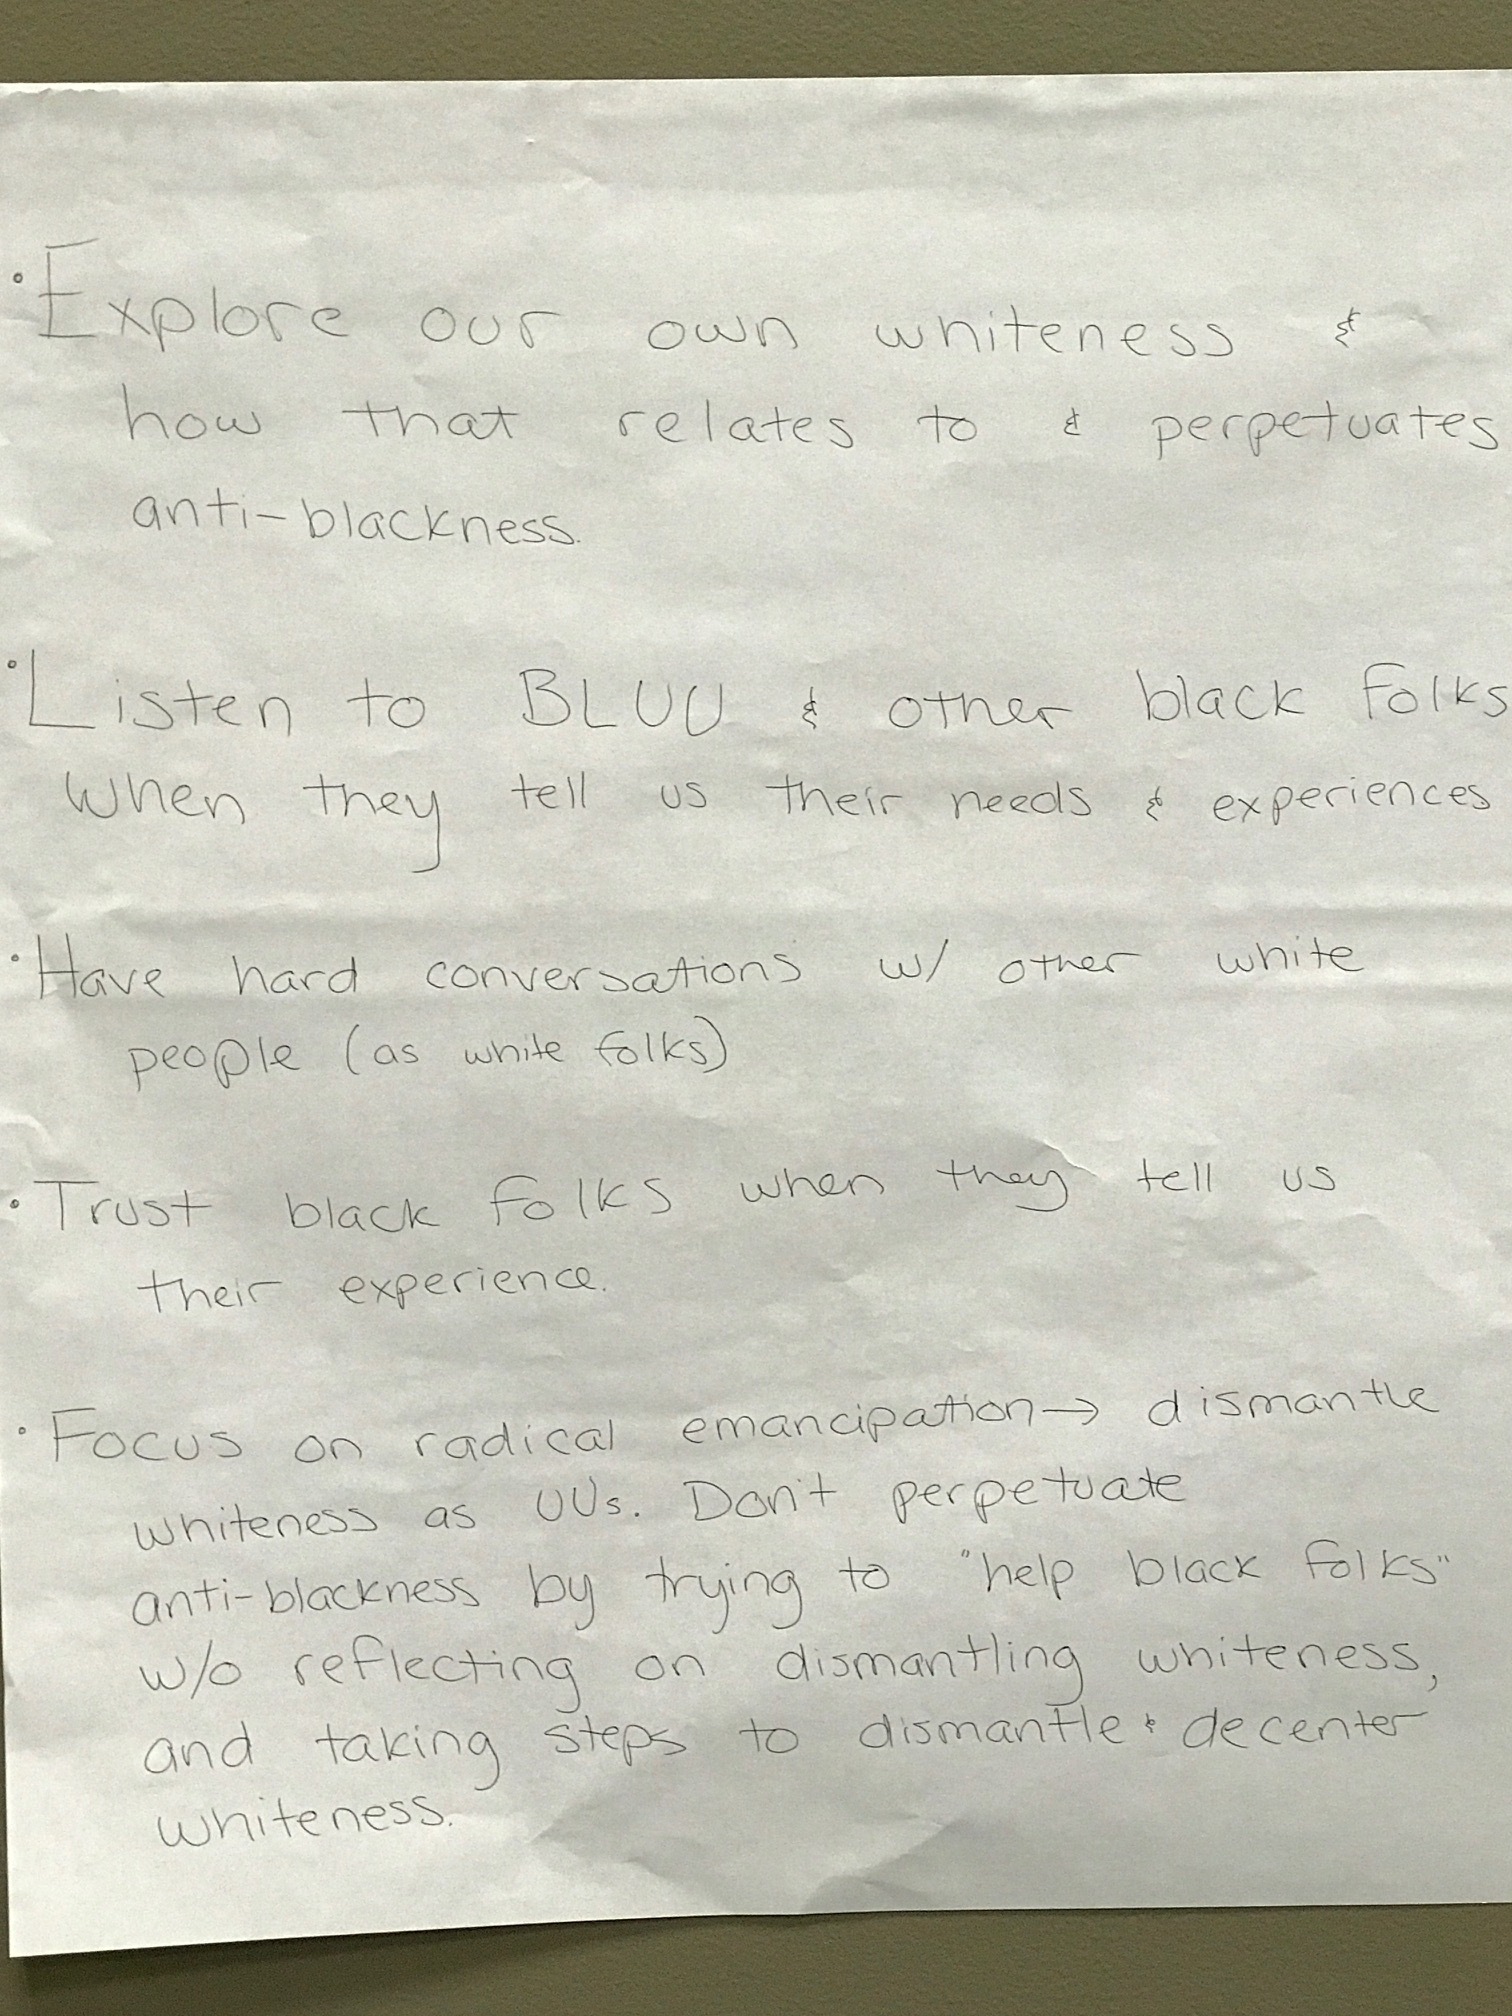 • Explore our own whiteness &
how that relates to & perpetuates
anti-blackness.
• Listen to BLUU & other black folks
when they tell us their needs & experiences
• Have hard conversations w/ other white
people (as white folks)
• Trust black folks when they tell us
their experience.
• Focus on radical emancipation→ dismantle
whiteness as UUs. Don't perpetuate
anti-blackness by trying to "help black folks"
w/o reflecting on dismantling whiteness,
and taking steps to dismantle & decenter
whiteness.